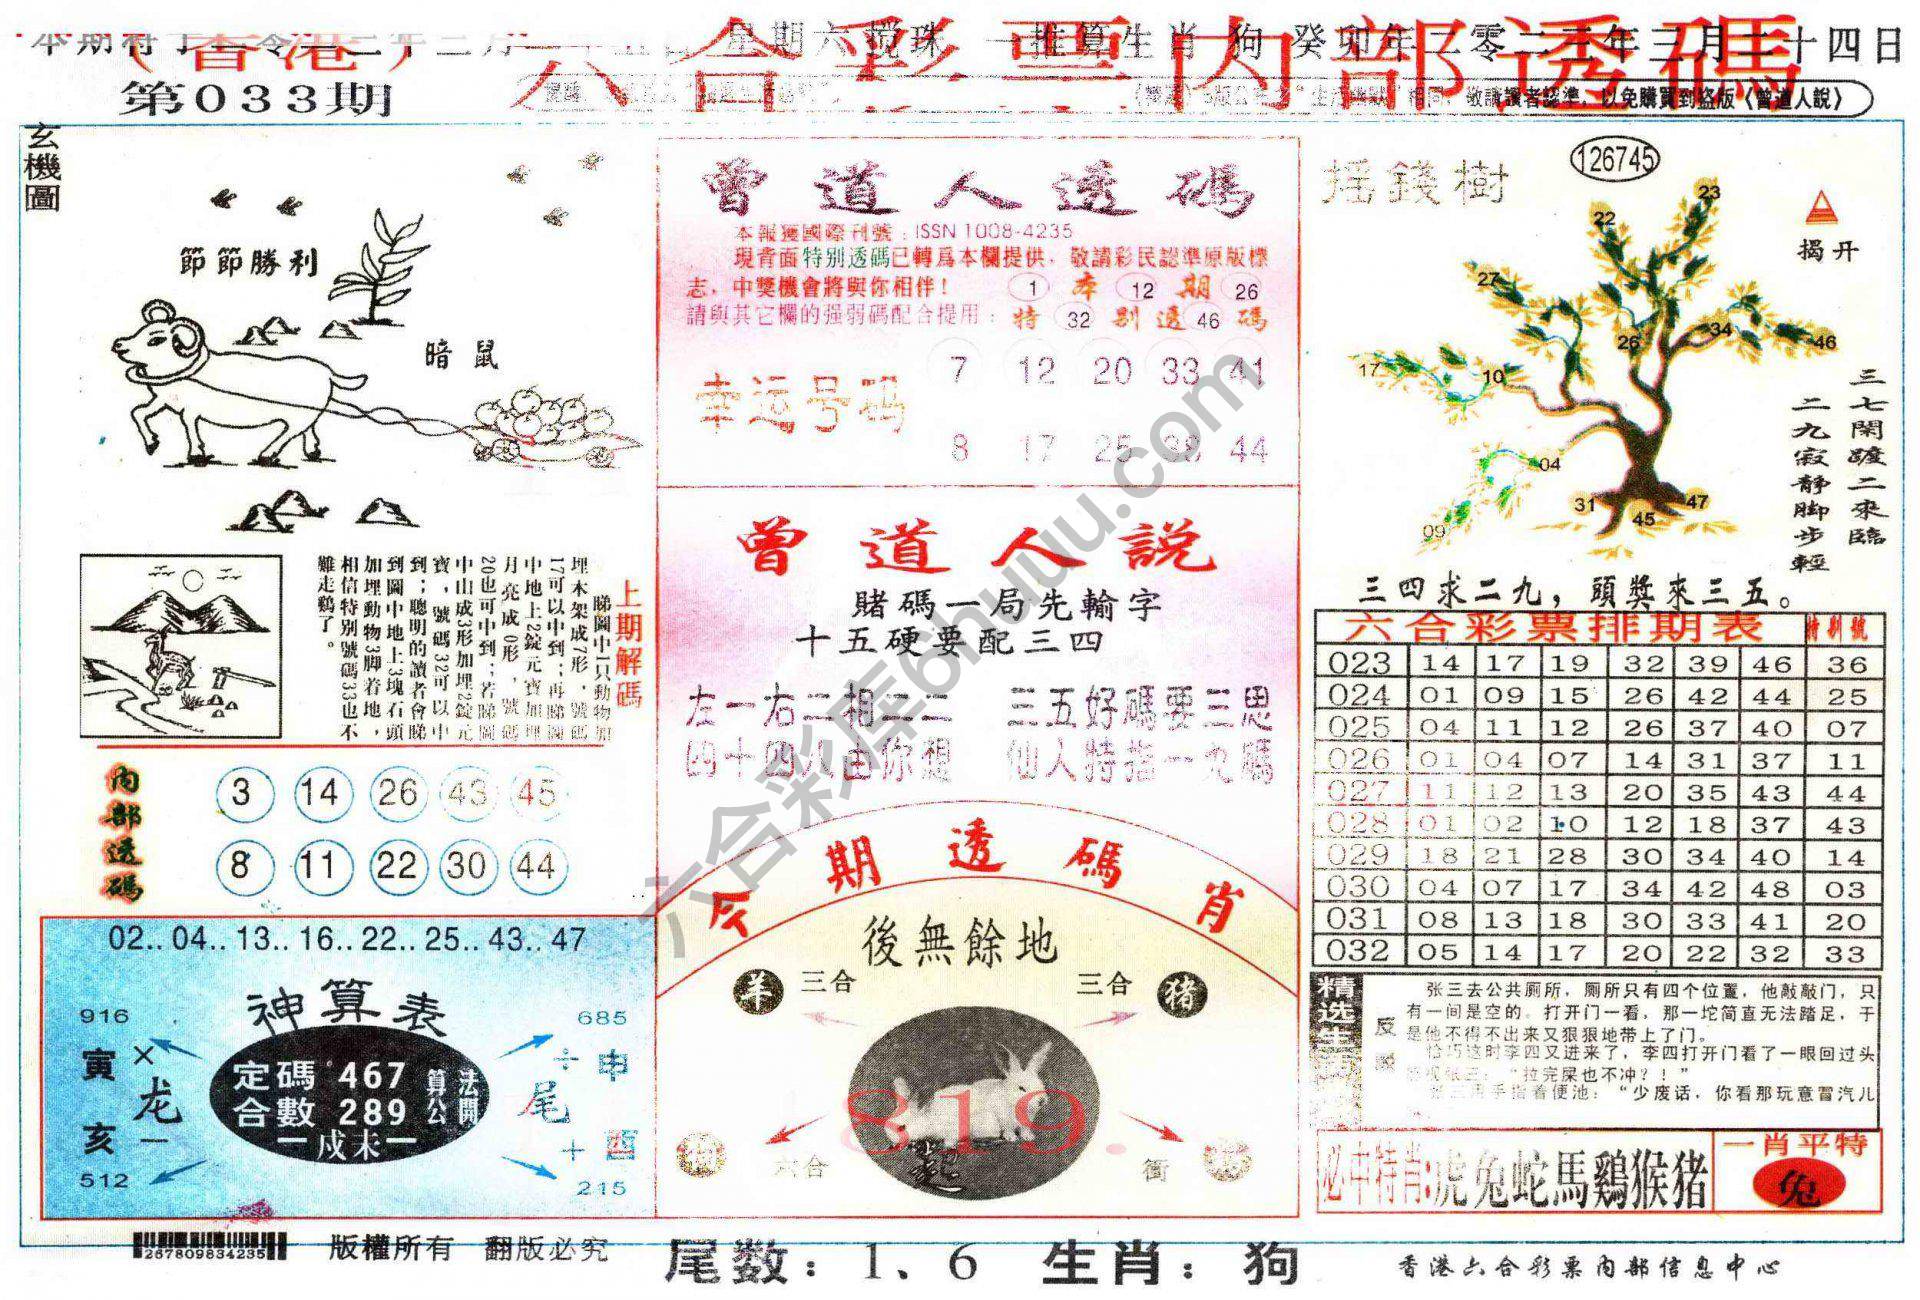 (香港)
第033期
六合彩票内部透碼
星期六搅珠
推算生肖 狗 癸卯年二零二三年三月二十四日
敬請讀者認準，以免購買到盜版《曾道人說》
玄機圖
節節勝利
暗鼠
上期解碼
睇圖中1只動物加
埋木架成7形，號碼
17可以中到；再睇圖
中地上2錠元寶加埋
月亮成0形，號碼
20也可中到；若睇圖
中山成3形加埋2錠元
寶，號碼32可以中
到；聰明的讀者會睇
到圖中地上3塊石頭
加埋動物3脚着地，
相信特别號碼33也不
難走鷄了。
内部透碼
3 14 26 43 45
8 11 22 30 44
02..04..13..16..22..25..43..47
神算表
916 685
寅 × 龙 一 亥
定碼 467
合數 289
算公 法開
一戍未一
÷ 申 尾 + 酉
512 215
267809834235
版權所有 翻版必究
曾道人透碼
本報獲國際刊號：ISSN 1008-4235
現背面特别透碼已轉爲本欄提供，敬請彩民認準原版標
志，中獎機會將與你相伴！
請與其它欄的强弱碼配合提用：
1 本 12 期 26
特 32 别 透 46 碼
幸运号码
7 12 20 33 41
8 17 25 38 44
曾道人説
賭碼一局先輸字
十五硬要配三四
左一右二相二二 三五好碼要三思
四十四八由你想 仙人特指一九碼
今期透碼肖
後無餘地
羊 三合 三合 猪
819.
六合 衝
尾数：1、6 生肖：狗
摇錢樹
126745
揭开
23
22
27
34
26
46
17
10
04
09
31
45
47
三七閑踱二來臨
二九寂静脚步輕
三四求二九，頭獎來三五。
六合彩票排期表 特别號
023 14 17 19 32 39 46 36
024 01 09 15 26 42 44 25
025 04 11 12 26 37 40 07
026 01 04 07 14 31 37 11
027 11 12 13 20 35 43 44
028 01 02 10 12 18 37 43
029 18 21 28 30 34 40 14
030 04 07 17 34 42 48 03
031 08 13 18 30 33 41 20
032 05 14 17 20 22 32 33
精选生
张三去公共厕所，厕所只有四个位置，他敲敲门，只
有一间是空的。打开门一看，那一坨简直无法踏足，于
是他不得不出来又狠狠地带上了门。
恰巧这时李四又进来了，李四打开门看了一眼回过头
张三："拉完屎也不冲？！"
手指着便池："少废话，你看那玩意冒汽儿
必中特肖:虎兔蛇馬鷄猴猪
一肖平特
兔
香港六合彩票内部信息中心
六合彩库6huuu.com